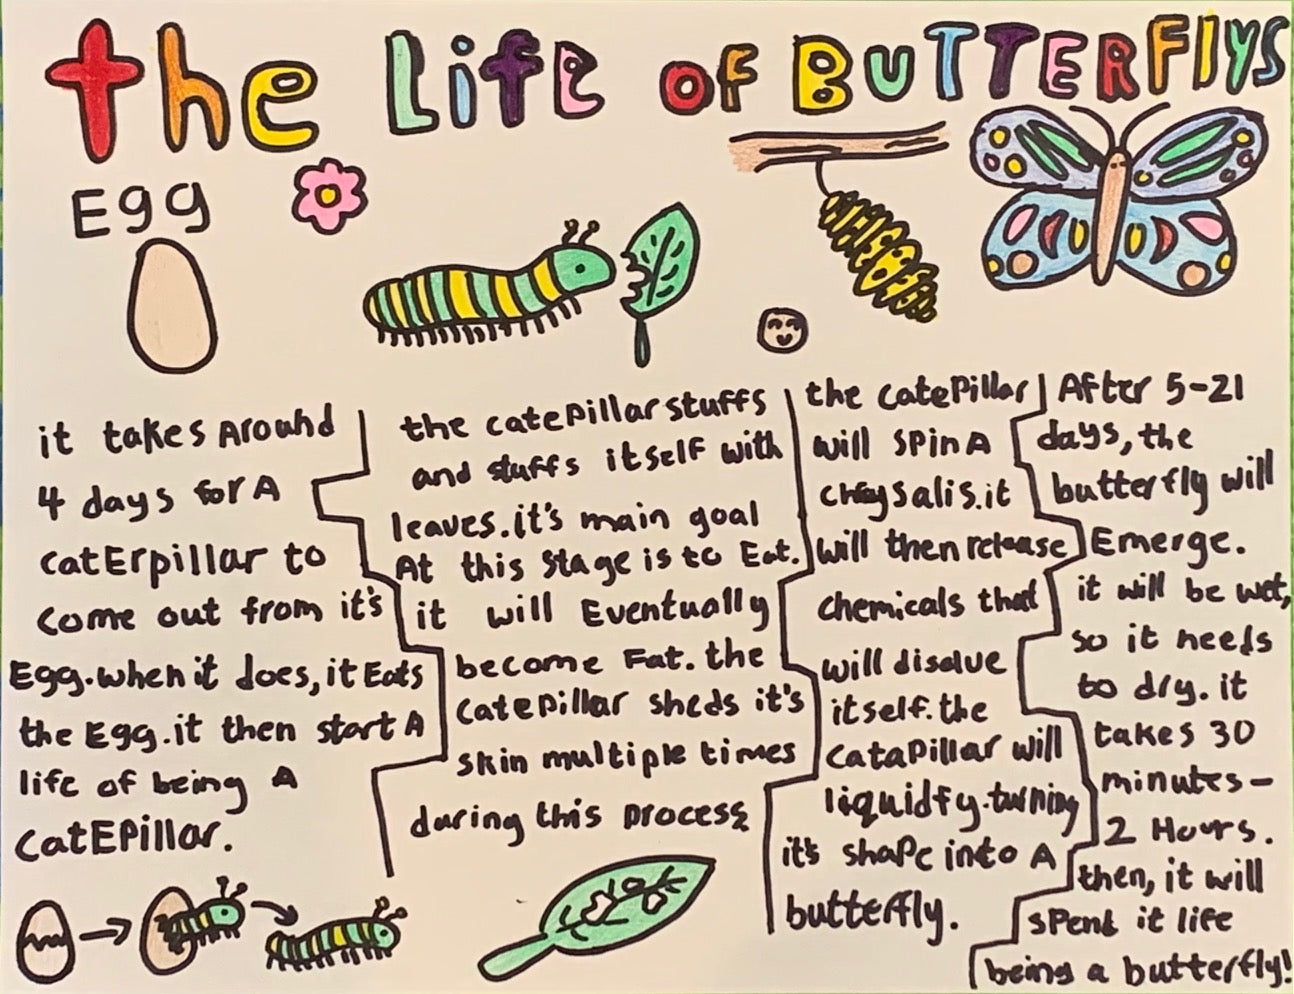 the Life of BUTTERFlYS
Egg
it takes Around
4 days for A
catErpillar to
come out from it's
Egg. when it does, it Eats
the Egg. it then start A
life of being A
catEPillar.
the catepillar stuffs
and stuffs itself with
leaves. it's main goal
At this stage is to Eat.
it will Eventually
become Fat. the
catepillar sheds it's
skin multiple times
during this process
the catePillar
will spin A
chrysalis. it
will then release
chemicals that
will disolve
itself. the
cataPillar will
liquidfy. turning
it's shape into A
butterfly.
After 5-21
days, the
butterfly will
Emerge.
it will be wet,
so it needs
to dry. it
takes 30
minutes-
2 Hours.
then, it will
spent it life
being a butterfly!